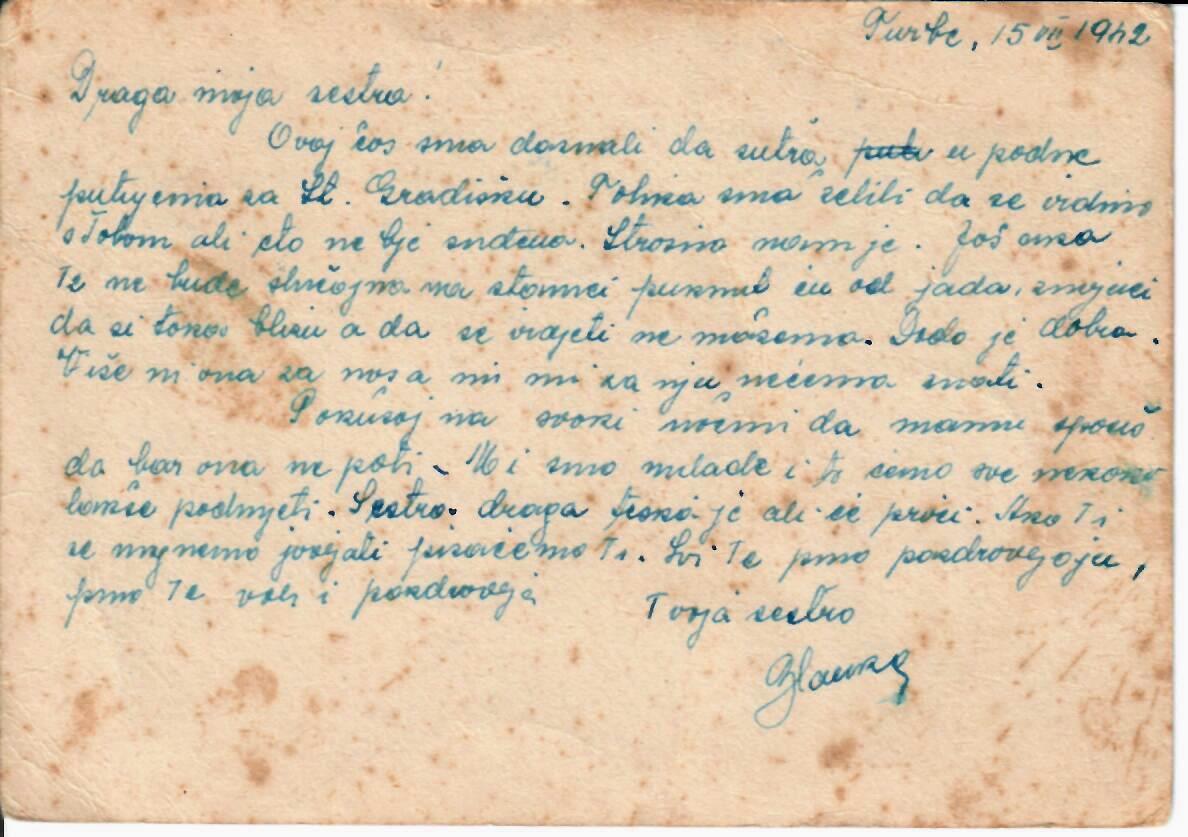 Turbe, 15 VII 1942
Draga moja sestra!
Ovaj čas smo doznali da sutra u podne
putujemo za St. Gradišku. Toliko smo želili da se vidimo
s Tobom ali eto ne bje suđeno. Strašno nam je. Još ako
Te ne bude slučajno na stanici puknut ću od jada, znajući
da si tako blizu a da se vidjeti ne možemo. Dodo je dobro.
Više ni ona za nas a ni mi za nju nećemo znati.
Pokušaj na svaki način da mamu spasiš
da bar ona ne pati. Mi smo mlade i to ćemo sve nekako
lakše podnjeti. Sestro draga teško je ali će proći. Ako Ti
se mognemo javljati pisaćemo Ti. Svi Te pno pozdravljaju,
pno Te voli i pozdravlja
Tvoja sestra
Blanka